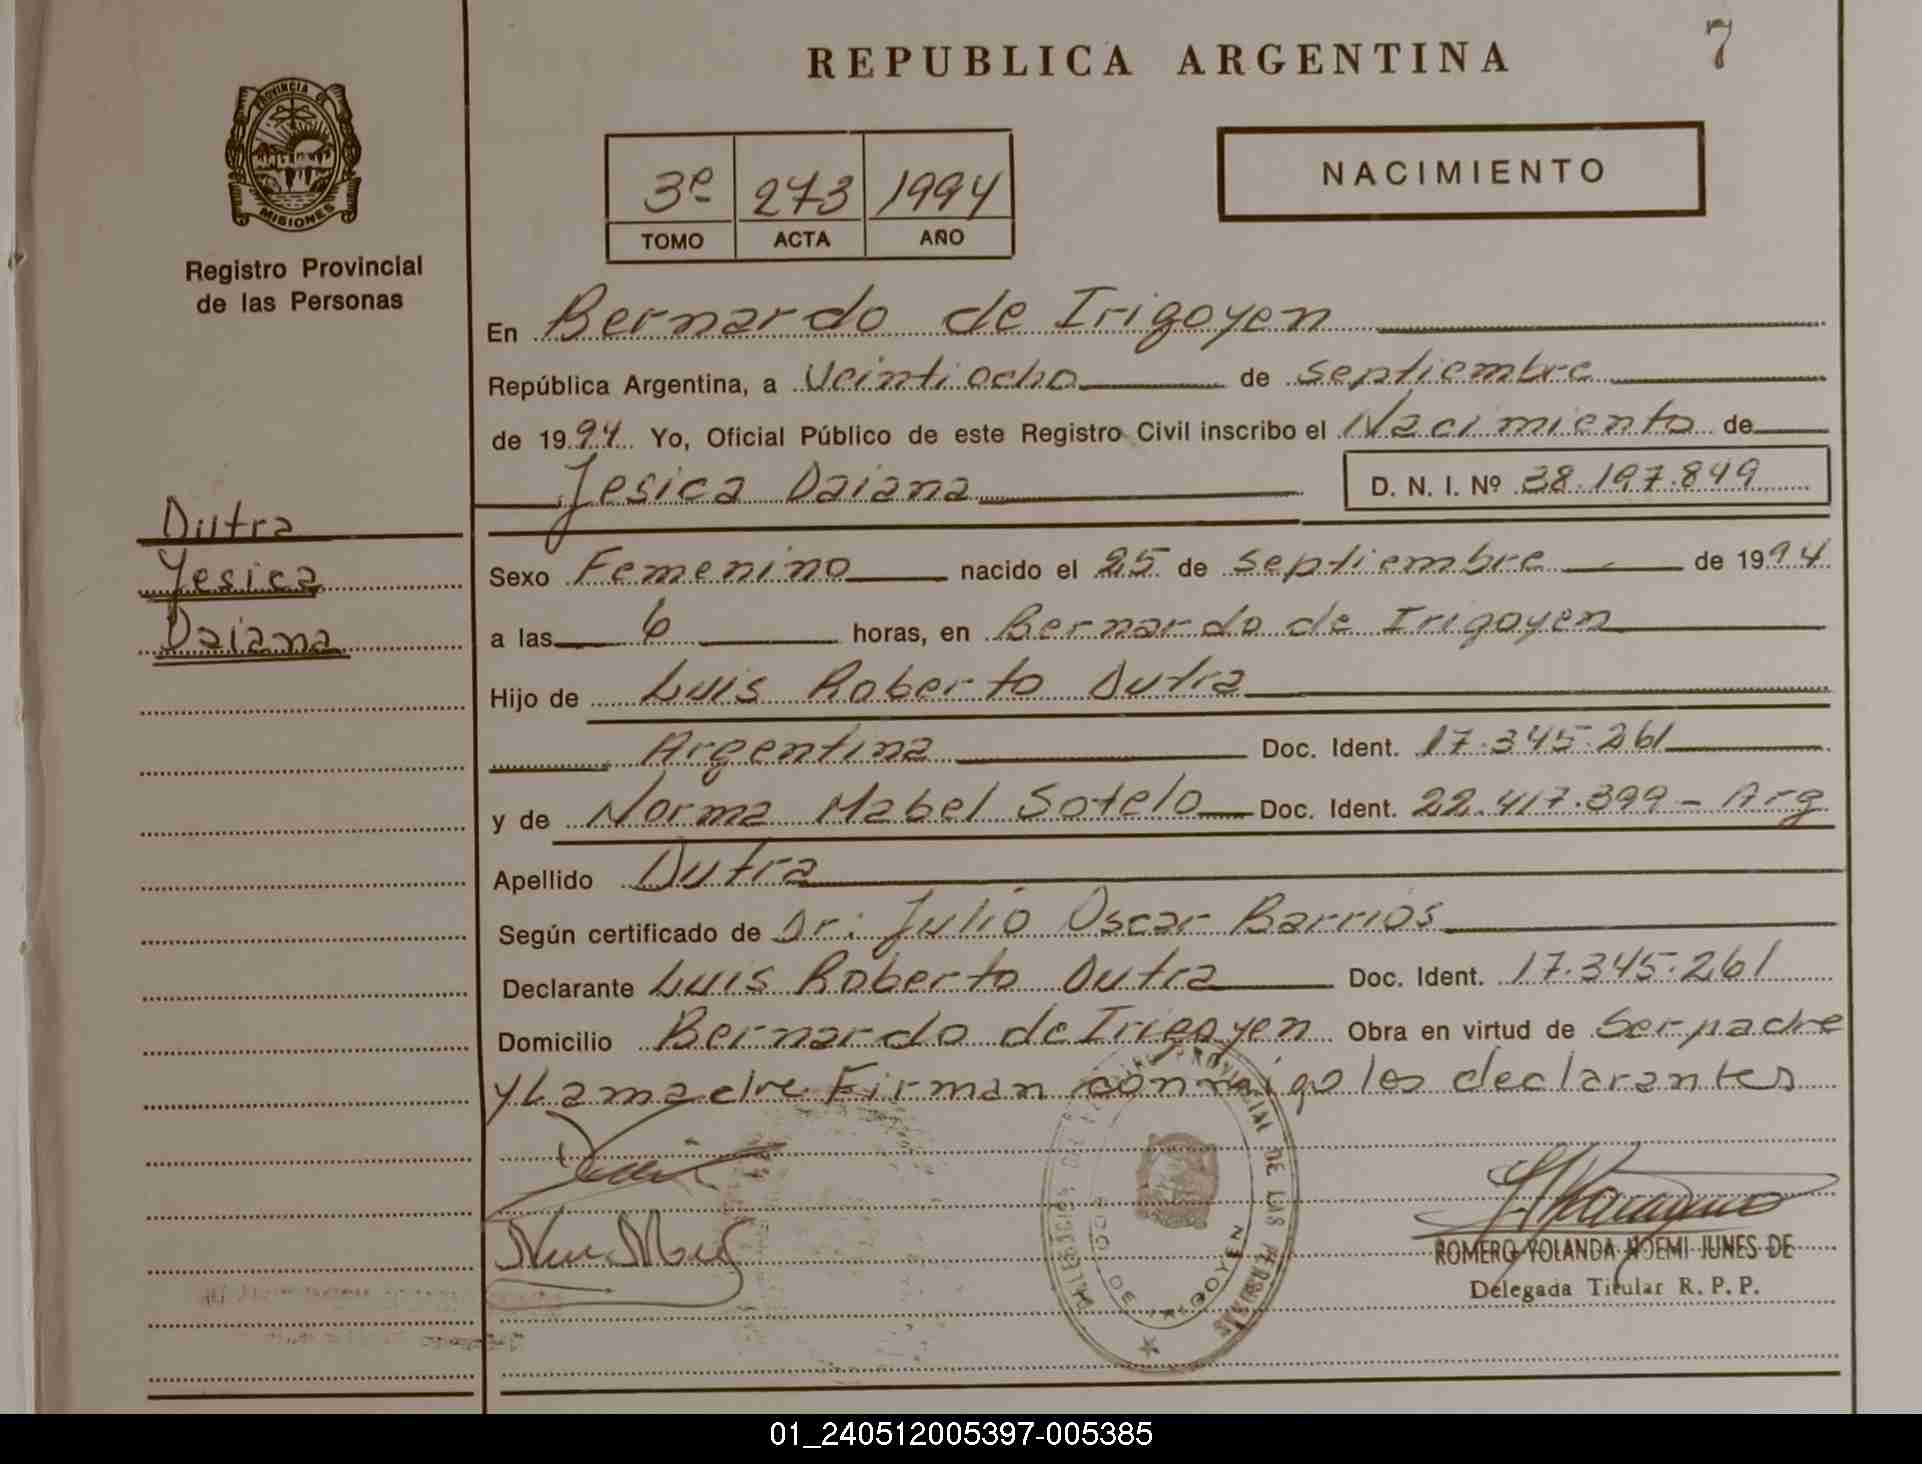 REPUBLICA ARGENTINA
7
PROVINCIA DE
MISIONES
Registro Provincial
de las Personas
3º 273 1994
TOMO ACTA AÑO
NACIMIENTO
En Bernardo de Irigoyen
República Argentina, a Veintiocho de septiembre
de 1994 Yo, Oficial Público de este Registro Civil inscribo el Nacimiento de
Jesica Daiana D. N. I. Nº 38.197.849
Dutra
Yesica
Daiana
Sexo Femenino nacido el 25 de septiembre de 1994
a las 6 horas, en Bernardo de Irigoyen
Hijo de Luis Roberto Dutra
Argentina Doc. Ident. 17.345.261
y de Norma Mabel Sotelo Doc. Ident. 22.417.399 - Arg
Apellido Dutra
Según certificado de Dr: Julio Oscar Barrios
Declarante Luis Roberto Dutra Doc. Ident. 17.345.261
Domicilio Bernardo de Irigoyen Obra en virtud de Ser padre
y La madre Firman conmigo los declarantes
PROVINCIAL DE LAS PERSONAS
DE IRIGOYEN
ROMERO YOLANDA NOEMI JUNES DE
Delegada Titular R. P. P.
01_240512005397-005385